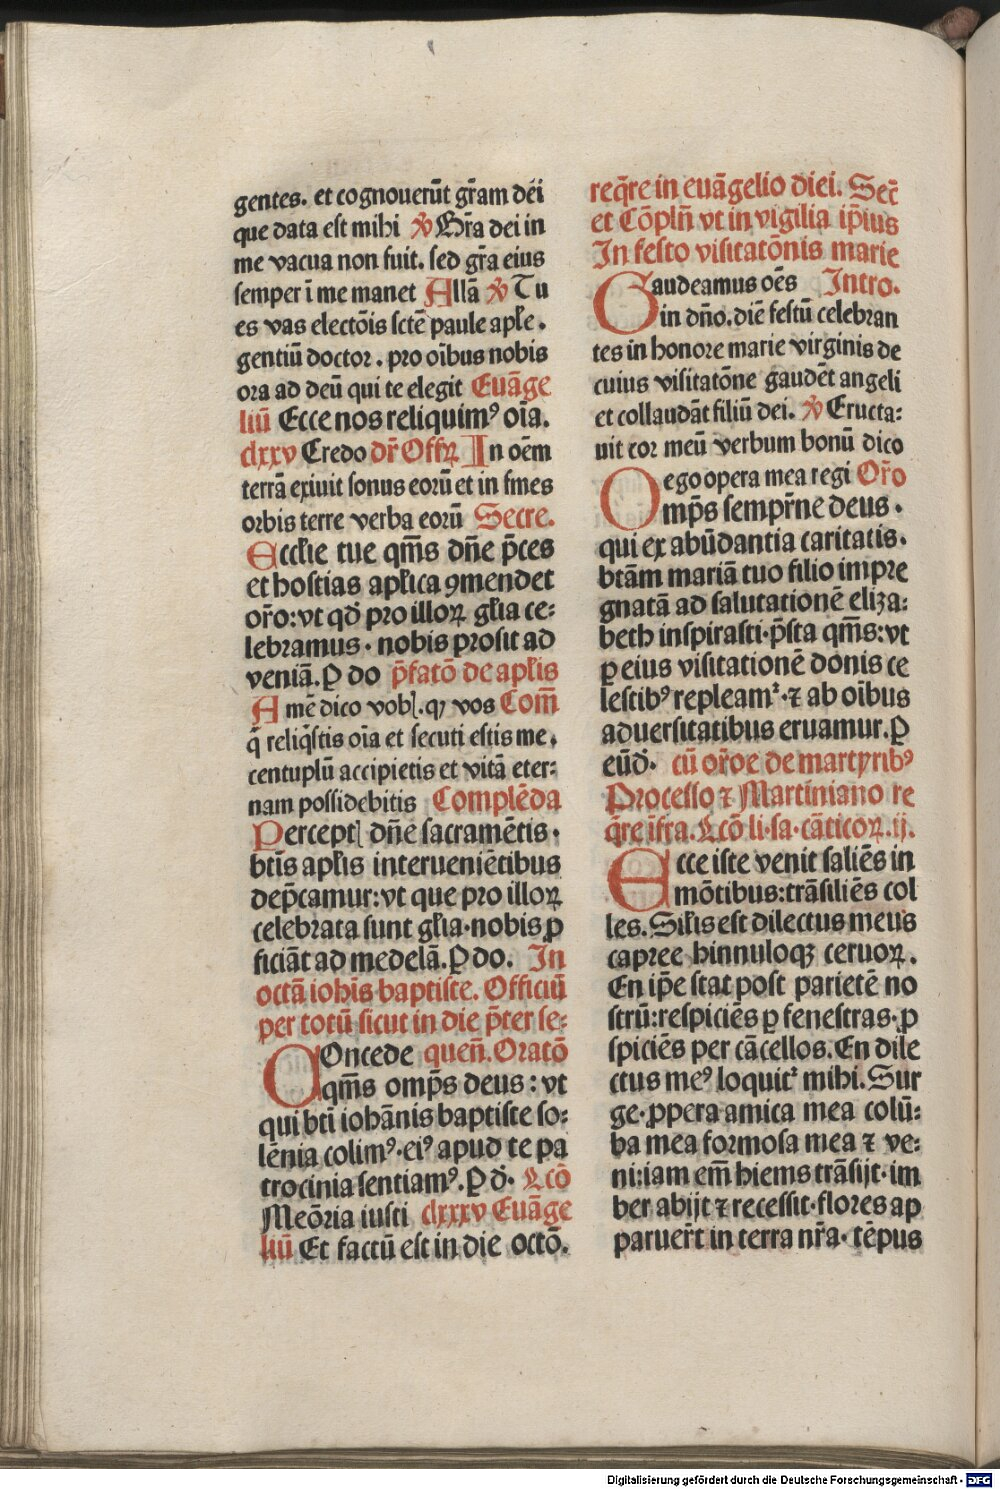 gentes. et cognouerūt gr̄am dei
que data est mihi ℣ Gr̄a dei in
me vacua non fuit. sed gr̄a eius
semper ī me manet Allā ℣ Tu
es vas electōis sctē paule aplē.
gentiū doctor. pro oībus nobis
ora ad deū qui te elegit Euāge
liū Ecce nos reliquimꝰ oīa.
clxxv Credo dr̄ Offꝝ In oēm
terrā exiuit sonus eorū et in fines
orbis terre verba eorū Secre.
Eccłie tue qm̄s dn̄e p̄ces
et hostias apłica ꝯmendet
or̄o: vt qd̓ pro illoꝝ głia ce-
lebramus. nobis prosit ad
veniā. ꝑ do p̄fatō de apłis
Amē dico vob. ꝙ vos Com̄
q̄ reliq̄stis oīa et secuti estis me.
centuplū accipietis et vitā eter-
nam possidebitis Complēda
Percept dn̄e sacramētis.
btīs apłis interueniētibus
dep̄camur: vt que pro illoꝝ
celebrata sunt głia. nobis ꝓ
ficiāt ad medelā. ꝑ do. In
octā iohīs baptiste. Officiū
per totū sicut in die p̄ter se-
COncede quen̄. Oratō
qm̄s omp̄s deus: vt
qui btī iohānis baptiste so-
lēnia colimꝰ. eiꝰ apud te pa
trocinia sentiamꝰ. ꝑ d̓. Lcō
Meōria iusti clxxxv Euāge
liū Et factū est in die octō.
req̄re in euāgelio diei. Sec̄
et Cōpln̄ vt in vigilia ip̄ius
In festo visitatōnis marie
Gaudeamus oēs Intro.
in dn̄o. diē festū celebran
tes in honore marie virginis de
cuius visitatōne gaudēt angeli
et collaudāt filiū dei. ℣ Eructa-
uit cor meū verbum bonū dico
ego opera mea regi Or̄o
Omp̄s sempr̄ne deus.
qui ex abūdantia caritatis.
btām mariā tuo filio impre
gnatā ad salutationē eliza-
beth inspirasti. p̄sta qm̄s: vt
ꝑ eius visitationē donis ce
lestibꝰ repleamᷣ. ⁊ ab oībus
aduersitatibus eruamur. ꝑ
eūd̓. cū or̄oe de martyribꝰ
Processo ⁊ Martiniano re
q̄re īfra. Lcō li. sa. cāticoꝝ. ij.
Ecce iste venit saliēs in
mōtibus: trāsiliēs col
les. Silis est dilectus meus
capree hinnuloqꝫ ceruoꝝ.
En ip̄e stat post parietē no
strū: respiciēs ꝑ fenestras. ꝓ
spiciēs per cācellos. En dile
ctus meꝰ loquitᷣ mihi. Sur
ge. ꝓpera amica mea colū-
ba mea formosa mea ⁊ ve-
ni: iam em̄ hiems trāsijt. im
ber abijt ⁊ recessit. flores ap
paruer̄t in terra nr̄a. tēpus
Digitalisierung gefördert durch die Deutsche Forschungsgemeinschaft - DFG